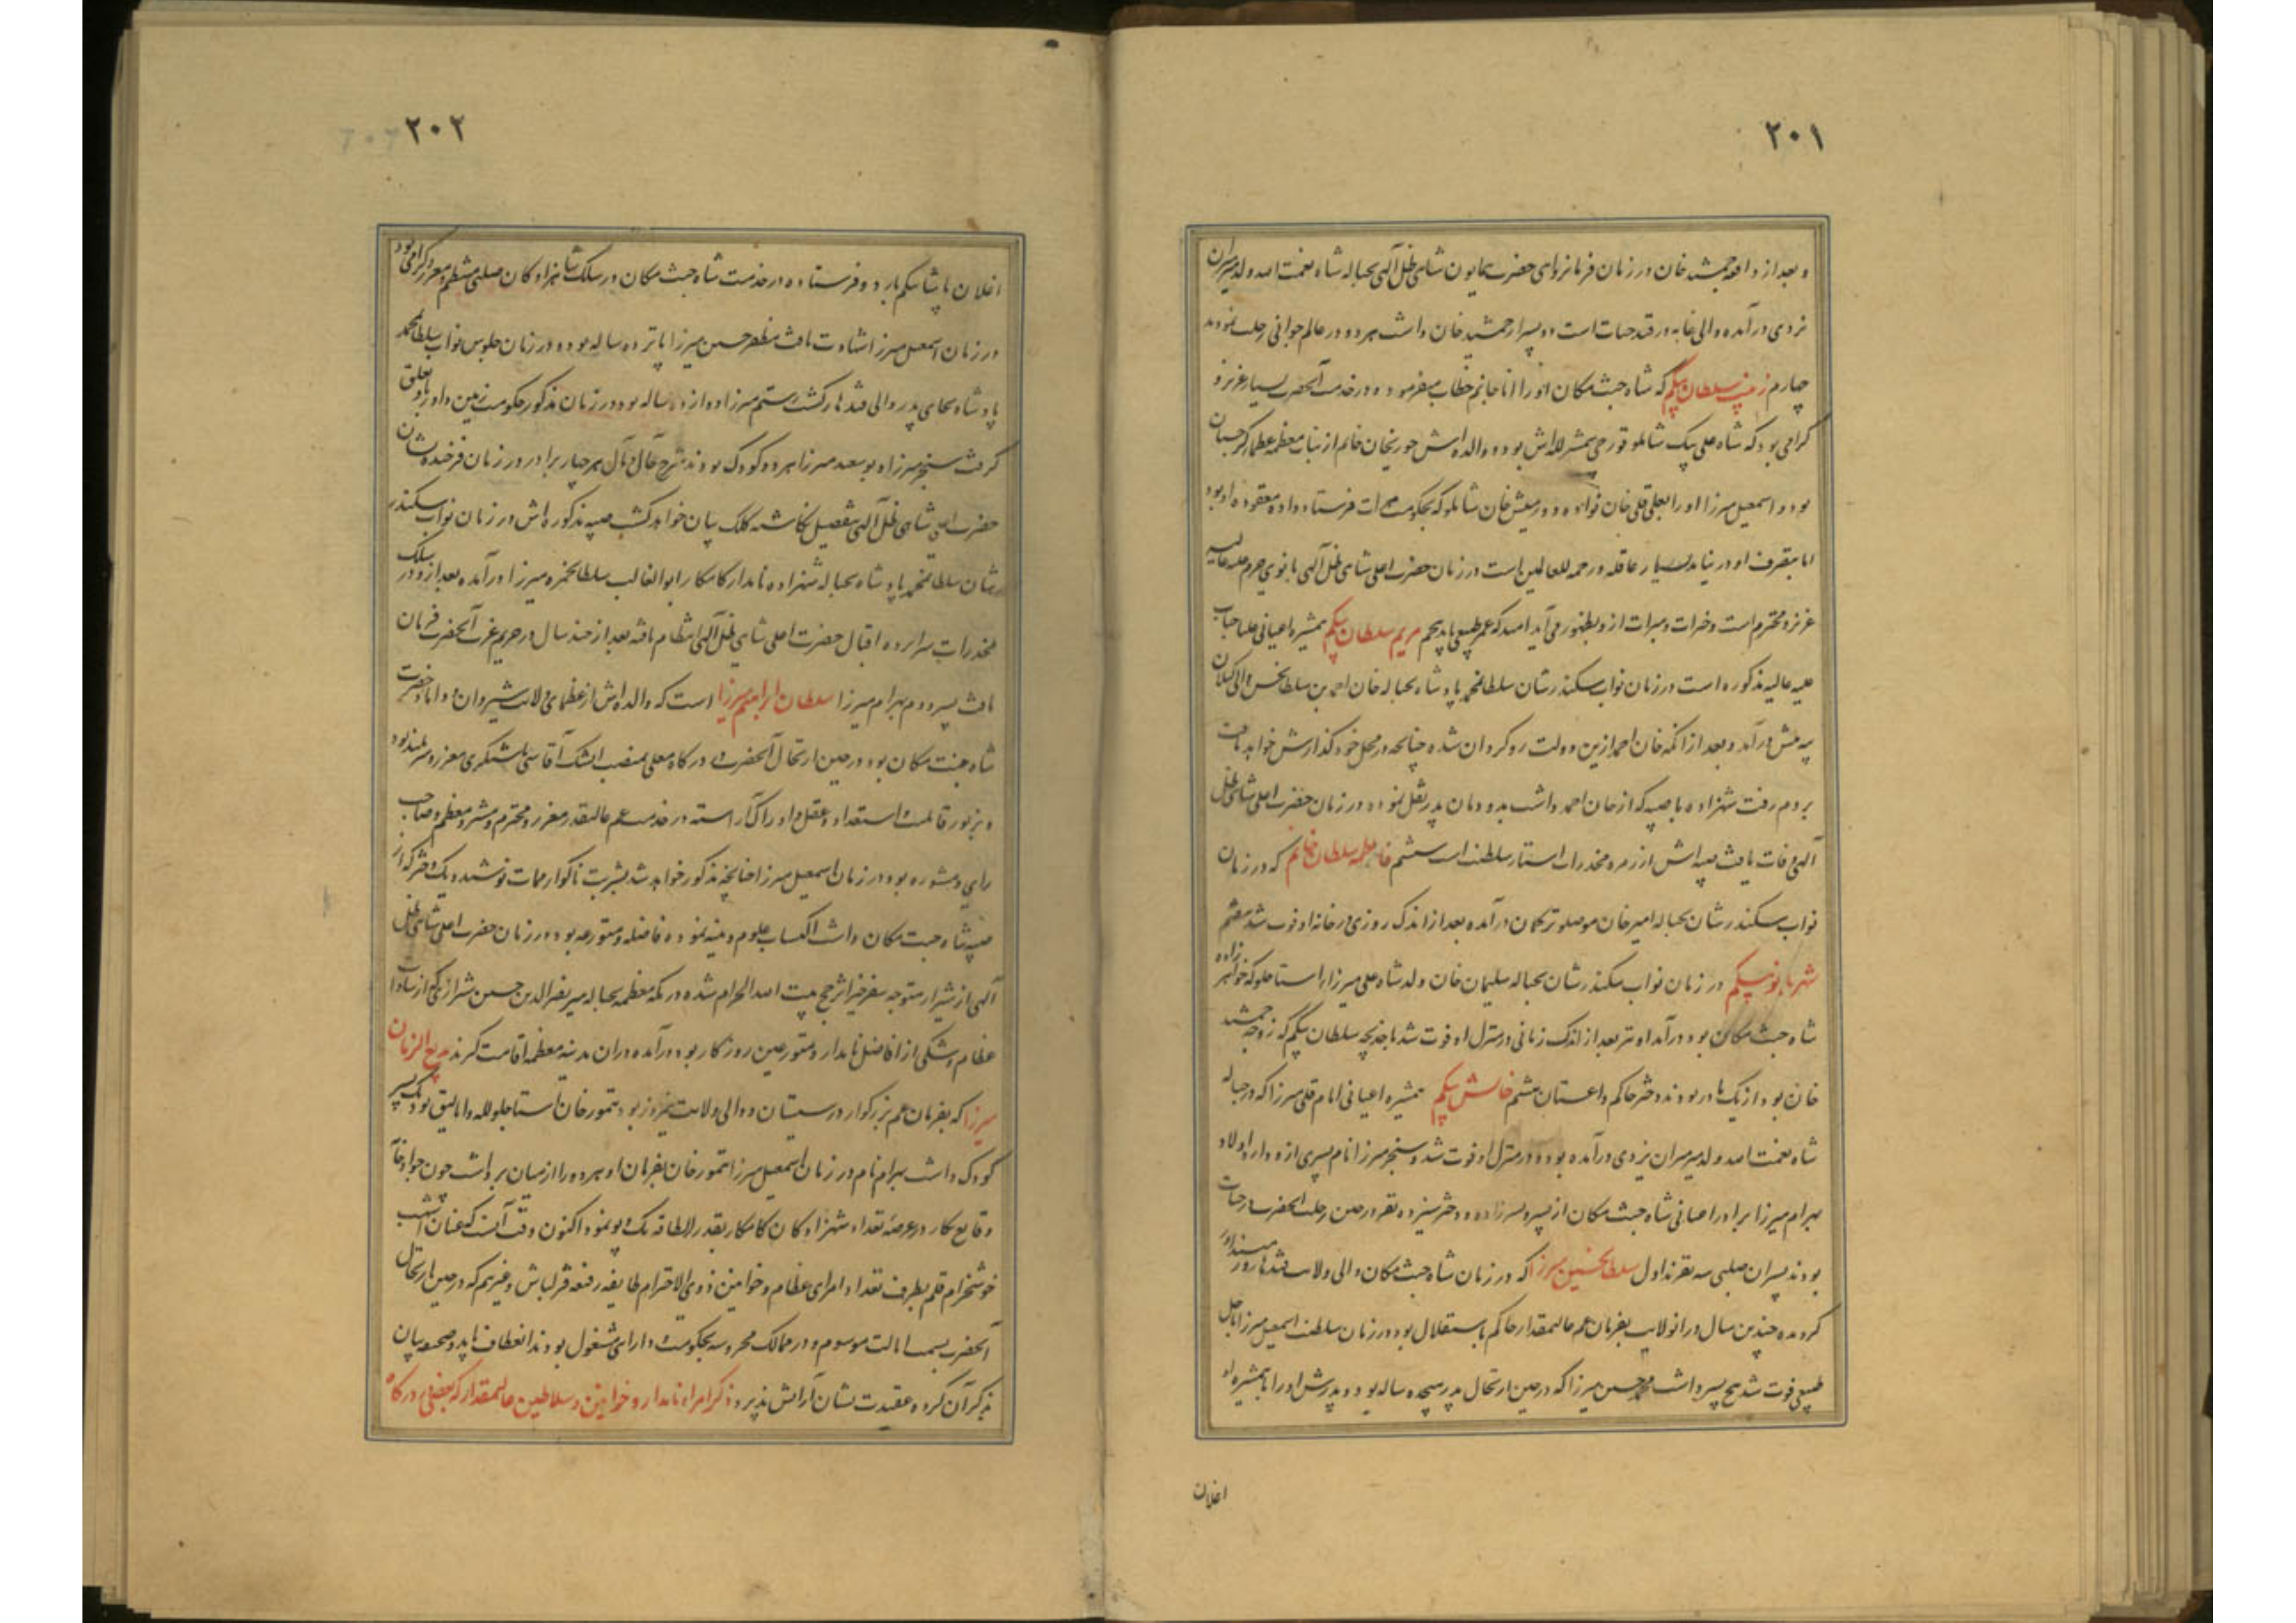 ۲۰۱
و بعد از واقعه جمشید خان در زمان فرمانروای حضرت همایون شاهی ظل آلهی بحباله شاه نعمت الله ولد میرمیران
یزدی درآمده والی غایه در قید حیات است دو پسر از جمشید خان داشت هر دو در عالم جوانی رحلت نمودند
چهارم زینب سلطان بیکم که شاه جنت مکان او را انا جانم خطاب میفرموده و در خدمت آنحضرت بسیار عزیز و
کرامی بود که شاه علی بیک شاملو قورچی شمشیر لله‌اش بود و والده اش حوریخان خانم از بنات معظمه عظمای کرجستان
بود و اسمعیل میرزا او را بعلی قلی خان نواده دورمیش خان شاملو که بحکومت هرات فرستاد داده معقوده او بود
اما بتصرف او در نیامد بسیار عاقله و رحمه للعالمین است در زمان حضرت اعلی شاهی ظل آلهی بانوی حرم علیه عالیه
عزیز و محترم است و خیرات و مبرات ازو بظهور می آید امید که عمر طبیعی یابد پنجم مریم سلطان بیکم همشیره اعیانی علیا جناب
علیه عالیه مذکوره است در زمان نواب سکندر شان سلطان محمد پادشاه بحباله خان احمد بن سلطان حسن والی کیلان
پیه پیش درآمد و بعد از آنکه خان احمد ازین دولت روکردان شده چنانچه در محل خود کذارش خواهد یافت
بروم رفت شهزاده با صبیه که از خان احمد داشت بدودمان پدر نقل نموده در زمان حضرت اعلی شاهی ظل
آلهی وفات یافت صبیه اش از زمره مخدرات استار سلطنت است ششم فاطمه سلطان خانم که در زمان
نواب سکندر شان بحباله امیر خان موصلو ترکمان درآمده بعد از اندک روزی در خانه او فوت شد هفتم
شهربانو بیکم در زمان نواب سکندر شان بحباله سلیمان خان ولد شاه علی میرزا استاجلو که خواهر زاده
شاه جنت مکان بود درآمد او نیز بعد از اندک زمانی در منزل او فوت شد با خدیجه سلطان بیکم که زوجه جمشید
خان بود از یک مادر بودند دختر حاکم داغستان هشتم خانش بیکم همشیره اعیانی امام قلی میرزا که در حباله
شاه نعمت الله ولد میرمیران یزدی درآمده بود و در منزل او فوت شد و سنجر میرزا نام پسری ازو دارد اولاد
بهرام میرزا برادر اعیانی شاه جنت مکان از پسر و پسرزاده و دختر سیزده نفر در حین رحلت آنحضرت در حیات
بودند پسران صلبی سه نفرند اول سلطان حسین میرزا که در زمان شاه جنت مکان والی ولایت قندهار و زمینداور
کردیده چندین سال در آن ولایت بفرمان عم عالیمقدار حاکم باستقلال بود در زمان سلطنت اسمعیل میرزا باجل
طبیعی فوت شد پنج پسر داشت محمد حسین میرزا که در حین ارتحال پدر هیجده ساله بود و پدرش او را با همشیره او
اغلان
۲۰۲
اغلان پاشا بیکم باردو فرستاده در خدمت شاه جنت مکان در سلک شاهزادکان صلبی منتظم و معزز و کرامی بود
در زمان اسمعیل میرزا شهادت یافت مظفر حسین میرزا پانزده ساله بود و در زمان جلوس نواب سلطان محمد
پادشاه بجای پدر والی قندهار کشت رستم میرزا دوازده ساله بود در زمان مذکور حکومت زمین داور باو تعلق
کرفت سنجر میرزا و بوسعید میرزا هر دو کودک بودند شرح حال و مآل هر چهار برادر در زمان فرخنده نشان
حضرت اعلی شاهی ظل آلهی بتفصیل نکاشته کلک بیان خواهد کشت صبیه مذکوره اش در زمان نواب سکندر
شان سلطان محمد پادشاه بحباله شهزاده نامدار کامکار ابوالغالب سلطان حمزه میرزا درآمده بعد ازو در سلک
مخدرات سرابرده اقبال حضرت اعلی شاهی ظل آلهی انتظام یافته بعد از چند سال در حریم عزت آنحضرت فرمان
یافت پسر دوم بهرام میرزا سلطان ابراهیم میرزا است که والده اش از عظمای ولایت شیروان و داماد حضرت
شاه جنت مکان بود در حین ارتحال آنحضرت در درکاه معلی بمنصب ایشک آقاسی باشیکری معزز و سربلند بود
و بزیور قابلیت و استعداد و عقل و ادراک آراسته در خدمت عم عالیقدر معزز و محترم و مشیر و معظم و صاحب
رای و مشوره بود در زمان اسمعیل میرزا چنانچه مذکور خواهد شد شربت ناکوار ممات نوشید و یک دختر که از
صبیه شاه جنت مکان داشت اکتساب علوم دینیه نموده فاضله و متورعه بود در زمان حضرت اعلی شاهی ظل
آلهی از شیراز متوجه سفر خیر اثر حج بیت الله الحرام شده در مکه معظمه بحباله میر نصر الدین حسین شیرازی که از سادات
عظام دشتکی از افاضل نامدار و متورعین روزکار بود درآمده در آن مدینه معظمه اقامت کرند بدیع الزمان
میرزا که بفرمان عم بزرکوار در سیستان و والی ولایت نیمروز بود و تیمور خان استاجلو لله و اتالیق بود یک پسر
کودک داشت بهرام نام در زمان اسمعیل میرزا تیمور خان بفرمان او هر دو را از میان برداشت چون جواد خامه
وقایع نکار در عرصه تعداد شهزادکان کامکار بقدر الطاقه تک و پو نمود اکنون وقت آنست که عنان اشهب
خوشخرام قلم بطرف تعداد امرای عظام و خوانین ذوی الاحترام طایفه رفیعه قزلباش و غیرهم که در حین ارتحال
آنحضرت بسمت ایالت موسوم و در ممالک محروسه بحکومت و دارائی مشغول بودند انعطاف یابد و صحیفه بیان
بذکر آن کروه عقیدت نشان آرایش پذیرد ذکر امراء نامدار و خوانین و سلاطین عالیمقدار که بعضی در درکاه